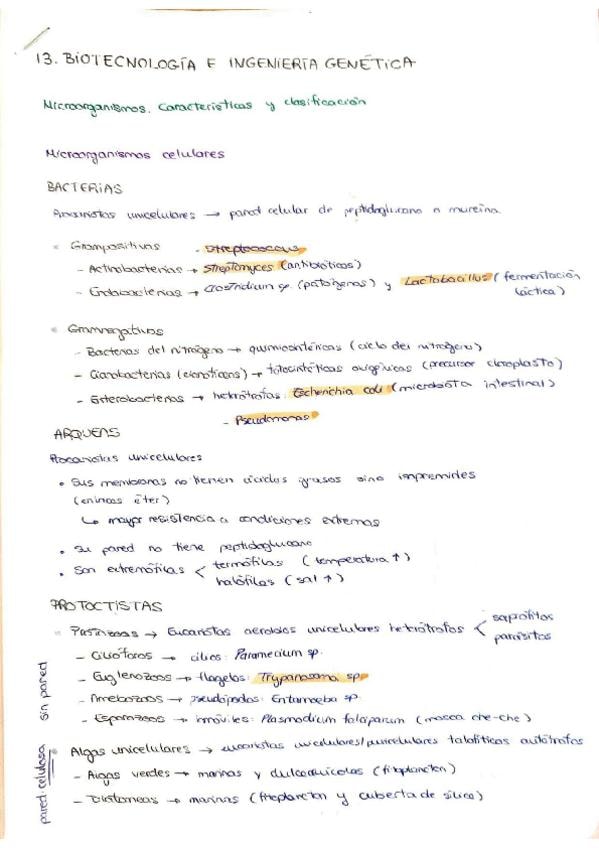 13. BIOTECNOLOGÍA E INGENIERÍA GENÉTICA
Microorganismos. Características y clasificación
Microorganismos celulares
BACTERIAS
unicelulares → pared celular de peptidoglucano o mureína.
Grampositivas - Streptococcus
- Actinobacterias → Streptomyces (antibióticos)
- → Clostridium sp. (patógenos) y Lactobacillus (fermentación
láctica)
Gramnegativas
- Bacterias del nitrógeno → quimiosintéticas (ciclo del nitrógeno)
- Cianobacterias → fotosintéticas oxigénicas (precursor cloroplasto)
- Enterobacterias → heterótrofas: Escherichia coli (microbiota intestinal)
- Pseudomonas
ARQUEAS
Procariotas unicelulares
• Sus membranas no tienen ácidos grasos sino
(enlaces éter)
↳ mayor resistencia a condiciones extremas
• Su pared no tiene peptidoglucano
• Son extremófilas < termófilas (temperatura ↑)
halófilas (sal ↑)
PROTOCTISTAS
→ Eucariotas aerobios unicelulares heterótrofos <
parásitos
- → cilios: Paramecium sp.
- Euglenozoos → flagelos: Trypanosoma sp
- Amebozoos → pseudópodos: Entamoeba sp.
- → inmóviles: Plasmodium (mosca che-che)
sin pared
Algas unicelulares → eucariotas unicelulares/pluricelulares autótrofas
- Algas verdes → marinas y dulceacuícolas (fitoplancton)
- Diatomeas → marinas (fitoplancton y cubierta de sílice)
pared celulosa